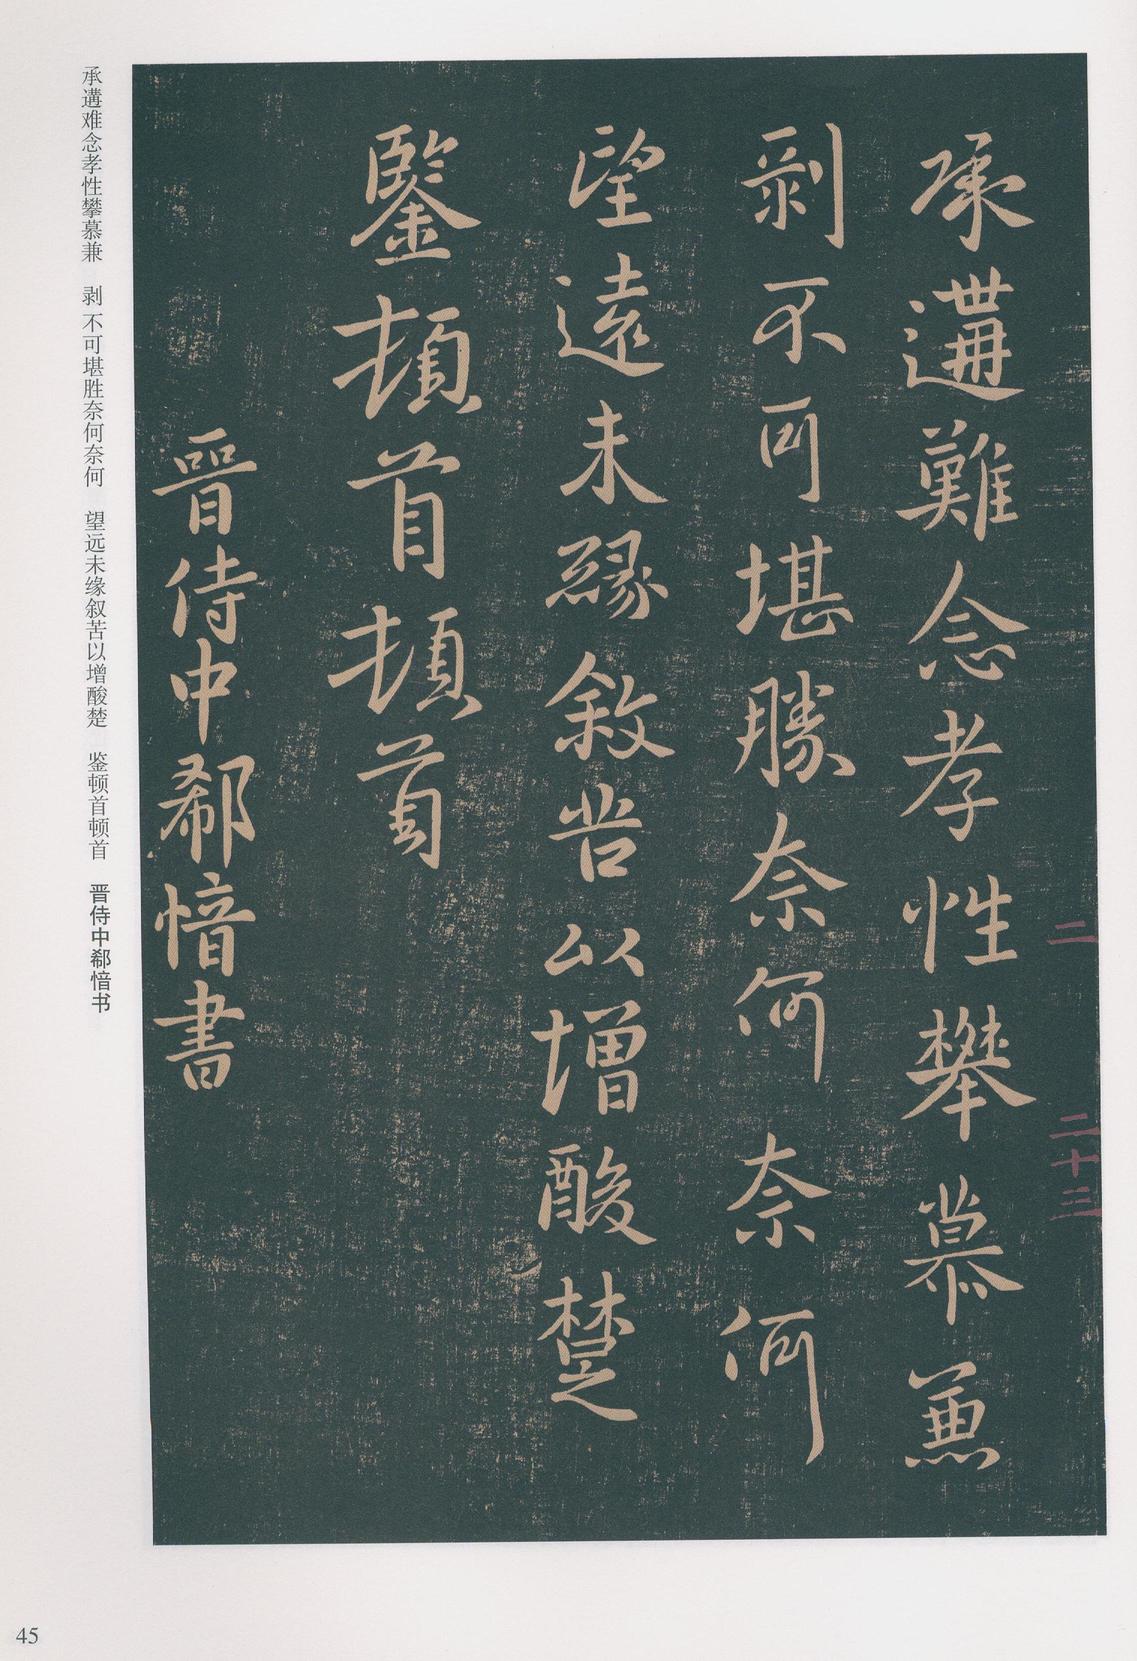 承遘難念孝性攀慕兼
剥不可堪勝奈何奈何
望遠未緣敘苦以增酸楚
鑒頓首頓首
晉侍中郗愔書
二 二十三
承遘难念孝性攀慕兼 剥不可堪胜奈何奈何 望远未缘叙苦以增酸楚 鉴顿首顿首 晋侍中郗愔书
45